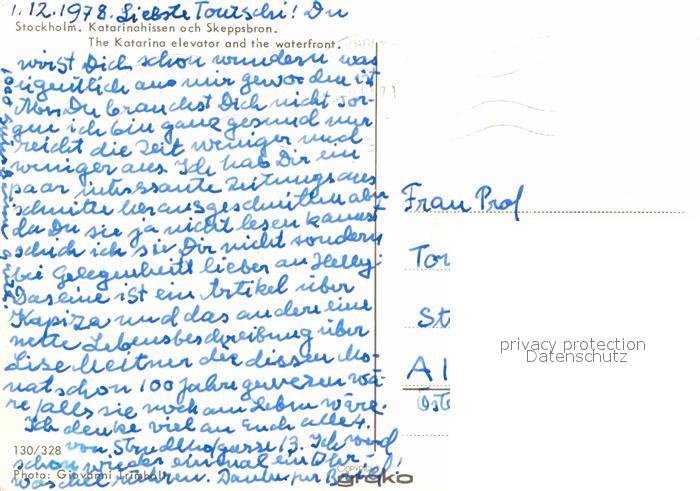 1.12.1978. Liebste Toutschi! Du
Stockholm. Katarinahissen och Skeppsbron.
The Katarina elevator and the waterfront.
wirst Dich schon wundern was
eigentlich aus mir geworden ist
Non Du brauchst Dich nicht sor-
gen ich bin ganz gesund nur
reicht die Zeit weniger und
weniger aus. Ich hab Dir ein
paar interessante Zeitungsaus
schnitte herausgeschnitten aber
da Du sie ja nicht lesen kannst
schick ich sie Dir nicht sondern
bei Gelegenheit lieber an Helly:
Das eine ist ein Artikel über
Kapiza und das andere eine
nette Lebensbeschreibung über
Lise Meitner die diesen Mo-
nat schon 100 Jahre gewesen wä-
re falls sie noch am Leben wäre.
Ich denke viel an Euch alle 4.
von Strudlhofgasse 13. Ich
schon wieder einmal ein
Danke für
1000
Frau Prof
Tor
St
Al
Öste
privacy protection
Datenschutz
130/328
Photo: Giovanni Trimboli
Copyright
grako